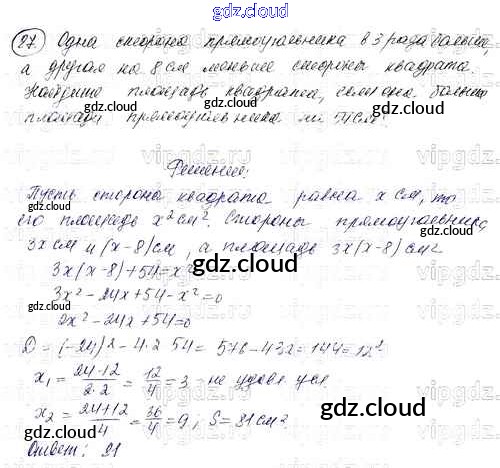 gdz.cloud gdz.cloud
27. Одна сторона прямоугольника в 3 раза больше,
а другая на 8 см меньше стороны квадрата.
Найдите площадь квадрата, если она больше
площади прямоугольника на 54 см²
Решение:
Пусть сторона квадрата равна x см, то
его площадь x² см². Стороны прямоугольника
3x см и (x-8) см, а площадь 3x(x-8) см²
3x(x-8)+54=x²
3x²-24x+54-x²=0
2x²-24x+54=0
D=(-24)²-4·2·54=576-432=144=12²
x₁=(24-12)/(2·2)=12/4=3 - не удовл. усл.
x₂=(24+12)/4=36/4=9; S=81 см².
Ответ: 81